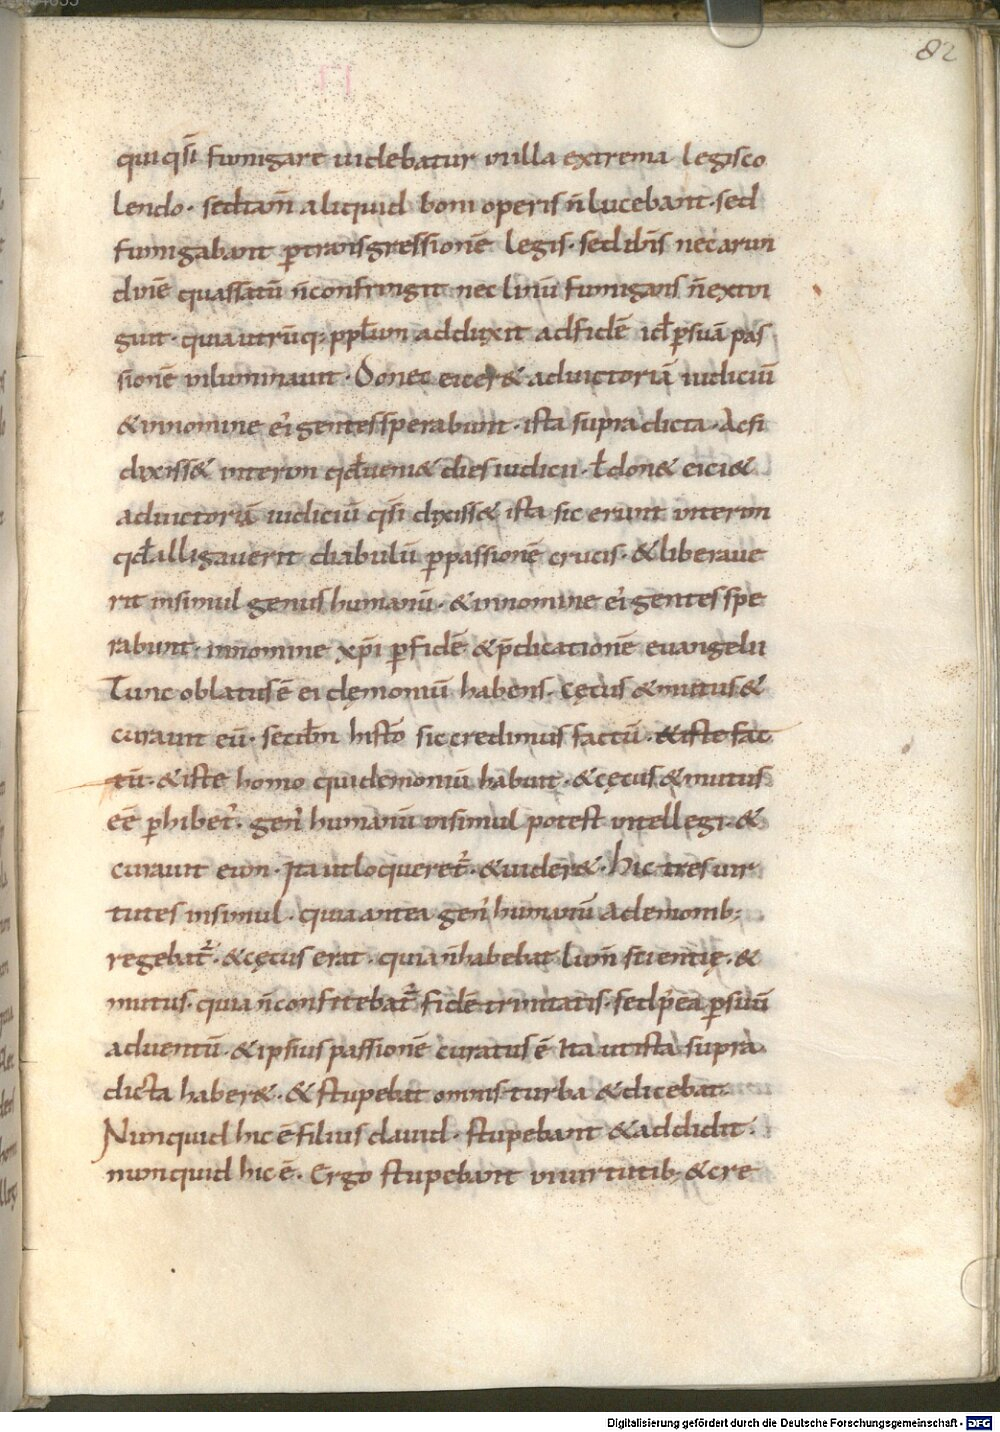 82
qui qsī fumigare uidebatur in illa extrema legis co
lendo · sed tam̄ aliquid boni operis n̄ lucebant · sed
fumigabant ꝑ transgressionē legis · sed dn̄s nec arun
dinē quassatū n̄ confringit nec linū fumigans n̄ extin
guit · quia utrūq; ppłum adduxit ad fidē id ꝑ suā pas
sionē inluminauit · Donec eicer& ad uictoriā iudiciū
& in nomine ei gentes sperabunt · ista supra dicta · Ac si
dixiss& interim qd̄ ueni& dies iudicii · ł don& eici&
ad uictoriā iudiciū qsī dixiss& ista sic erunt interim
qd̄ alligauerit diabulū ꝑ passionē crucis · & liberaue
rit insimul genus humanū · & in nomine ei gentes spe
rabunt · in nomine xp̄i ꝑ fidē & p̄dicationē euangelii
Tunc oblatus ē ei demoniū habens · cęcus & mutus &
curauit eū · secdm̄ histō sic credimus factū · & iste fac
tū · & iste homo qui demoniū habuit · & cęcus & mutus
eē ꝑhibet̄ · gen̄ humanū insimul potest intellegi · &
curauit eum · Ita ut loqueret̄ · & uider& · Hic tres uir
tutes insimul · quia antea gen̄ humanū a demonib;
regebat̄ · & cęcus erat · quia n̄ habebat lum̄ scientię · &
mutus · quia n̄ confitebat̄ fidē trinitatis · sed p̄ ea ꝑ suū
aduentū · & ipsius passionē curatus ē Ita ut ista supra
dicta haber& · & stupebat omnis turba & dicebat
Nunquid hic ē filius dauid · stupebant & addidit ·
nunquid hic ē · Ergo stupebant in uirtutib; & cre
Digitalisierung gefördert durch die Deutsche Forschungsgemeinschaft - DFG